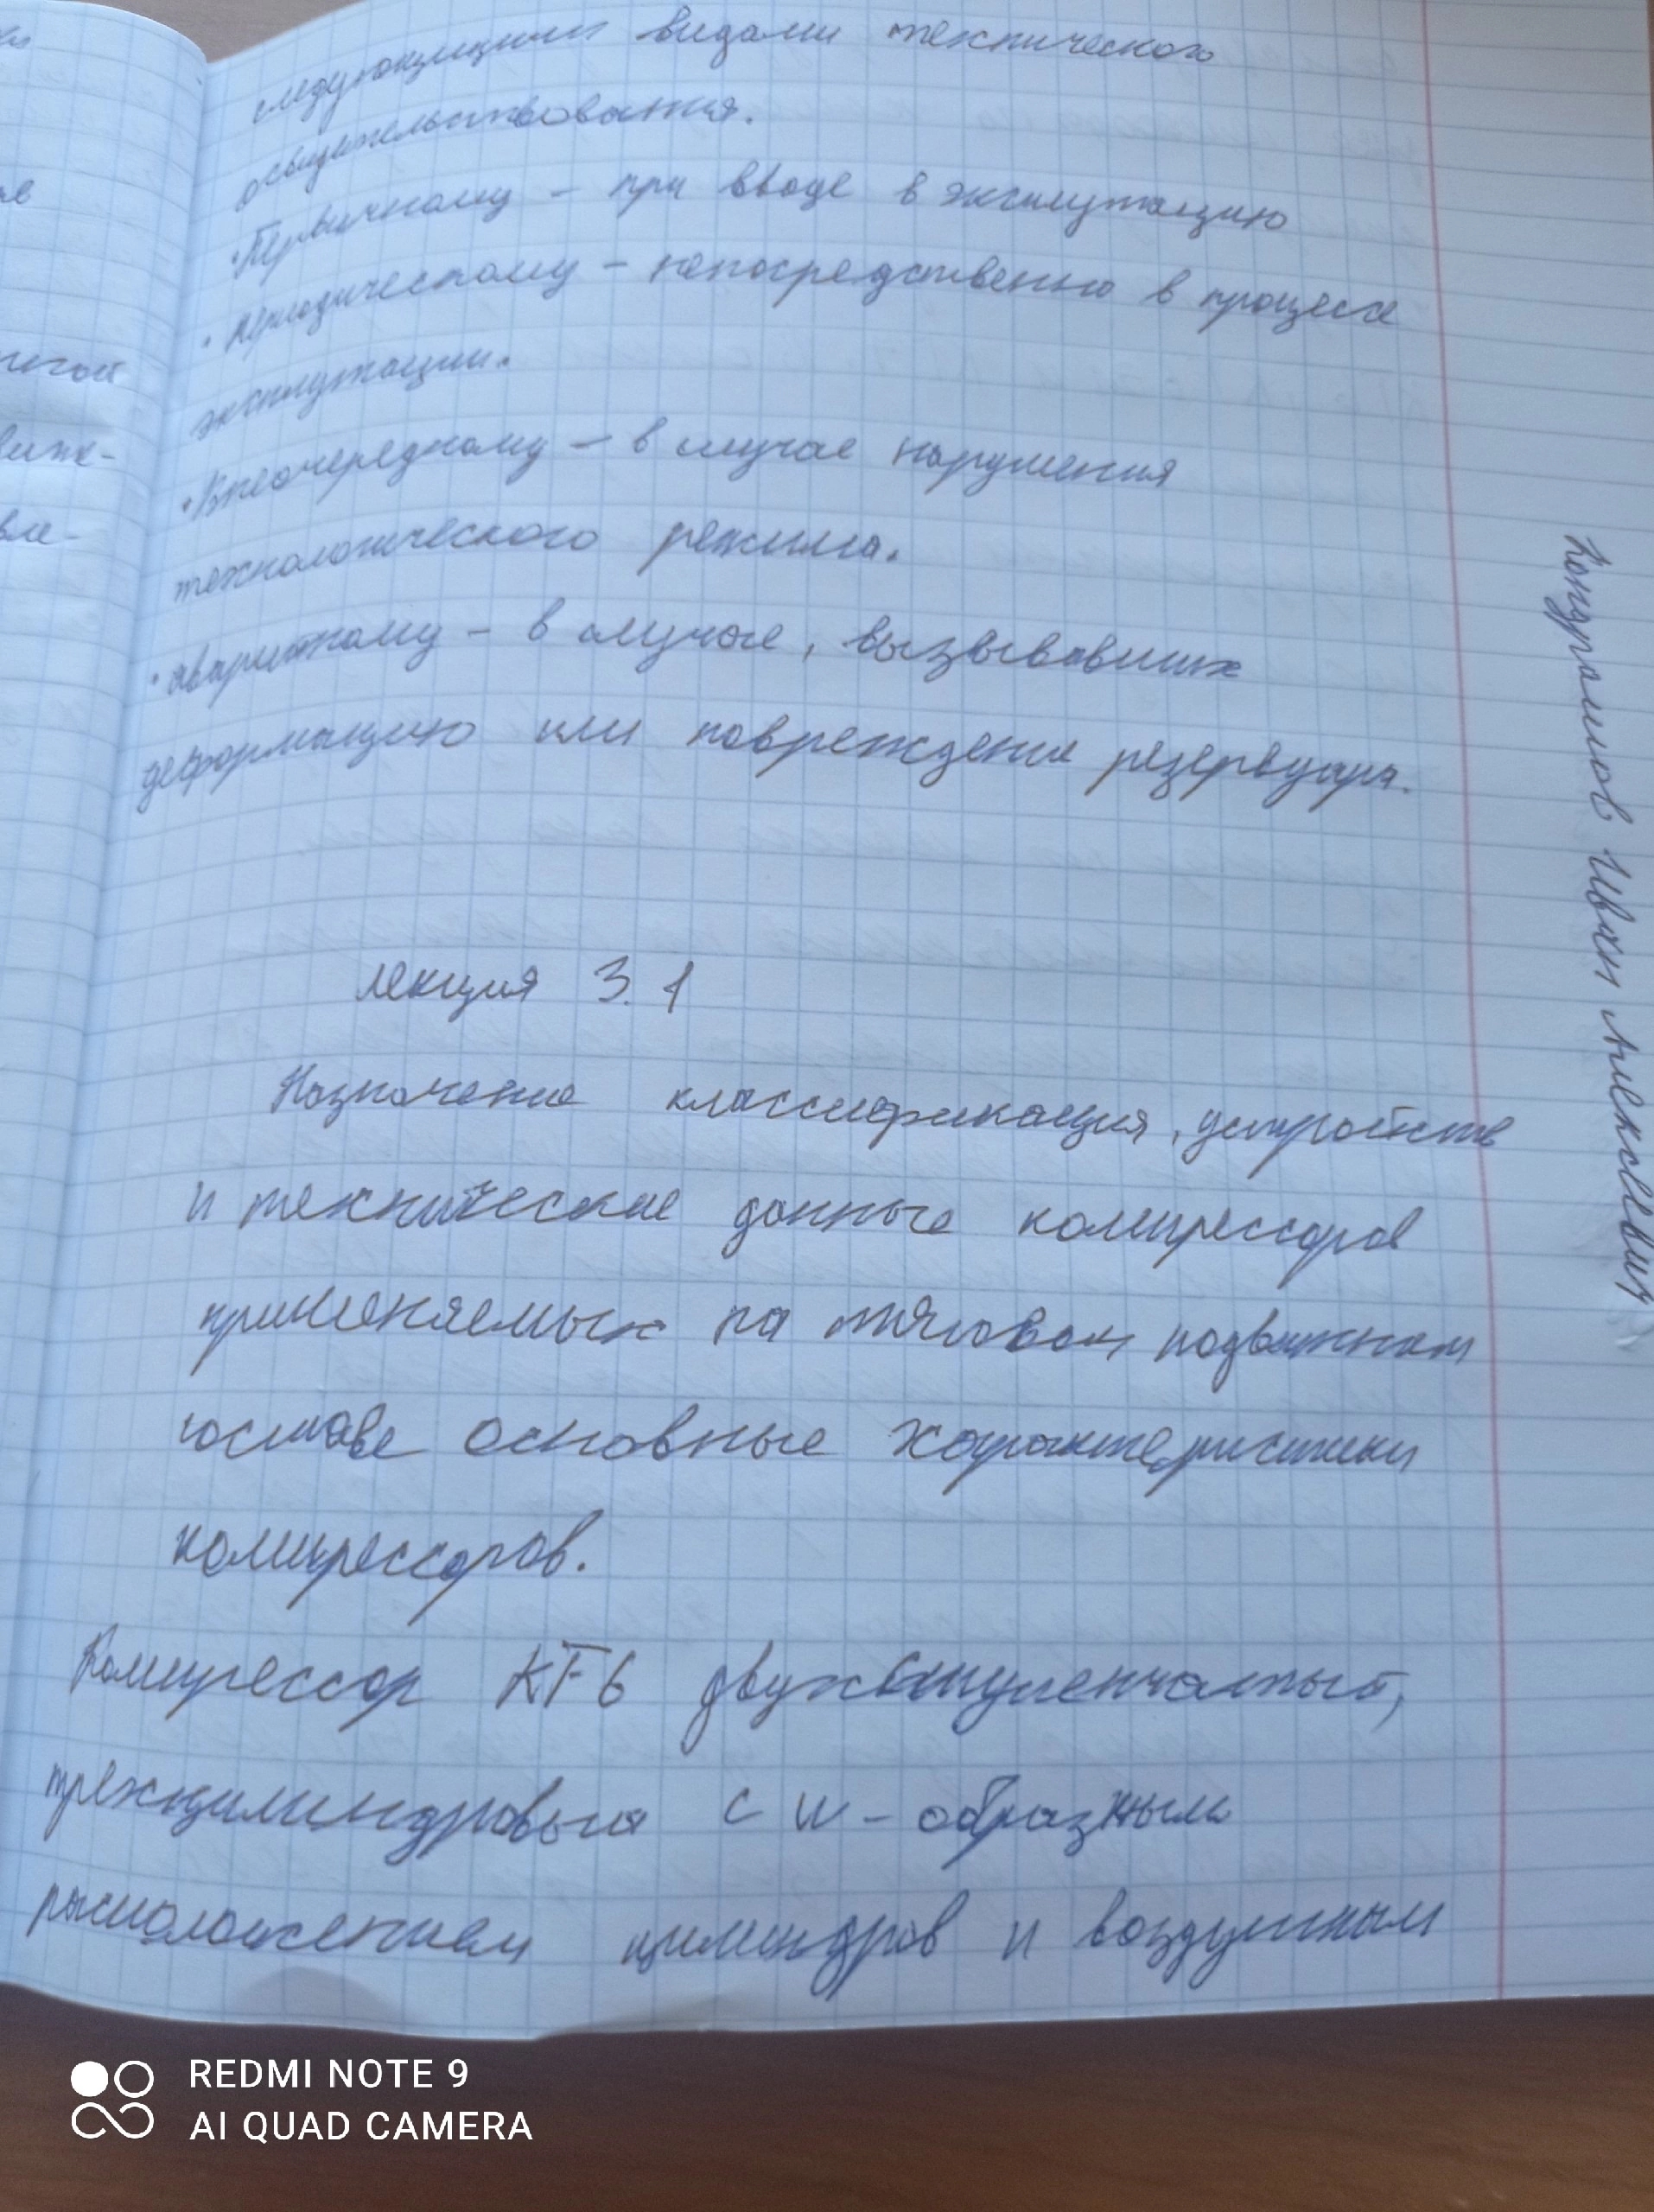 следующими видами технического
освидетельствования.
• Первичному – при вводе в эксплутацию
• периодическому – непосредственно в процессе
эксплутации.
• Внеочередному – в случае нарушения
технологического режима.
• аварийному – в случае, вызывавших
деформацию или повреждение резервуара.
лекция 3.1
Назначение классификация, устройств
и технические данные компрессоров
применяемых на тяговом подвижном
составе основные характеристики
компрессоров.
Компрессор КТ6 двухступенчатый,
трехцилиндровый с W-образным
расположением цилиндров и воздушным
Кондрашов Иван Алексеевич
REDMI NOTE 9
AI QUAD CAMERA